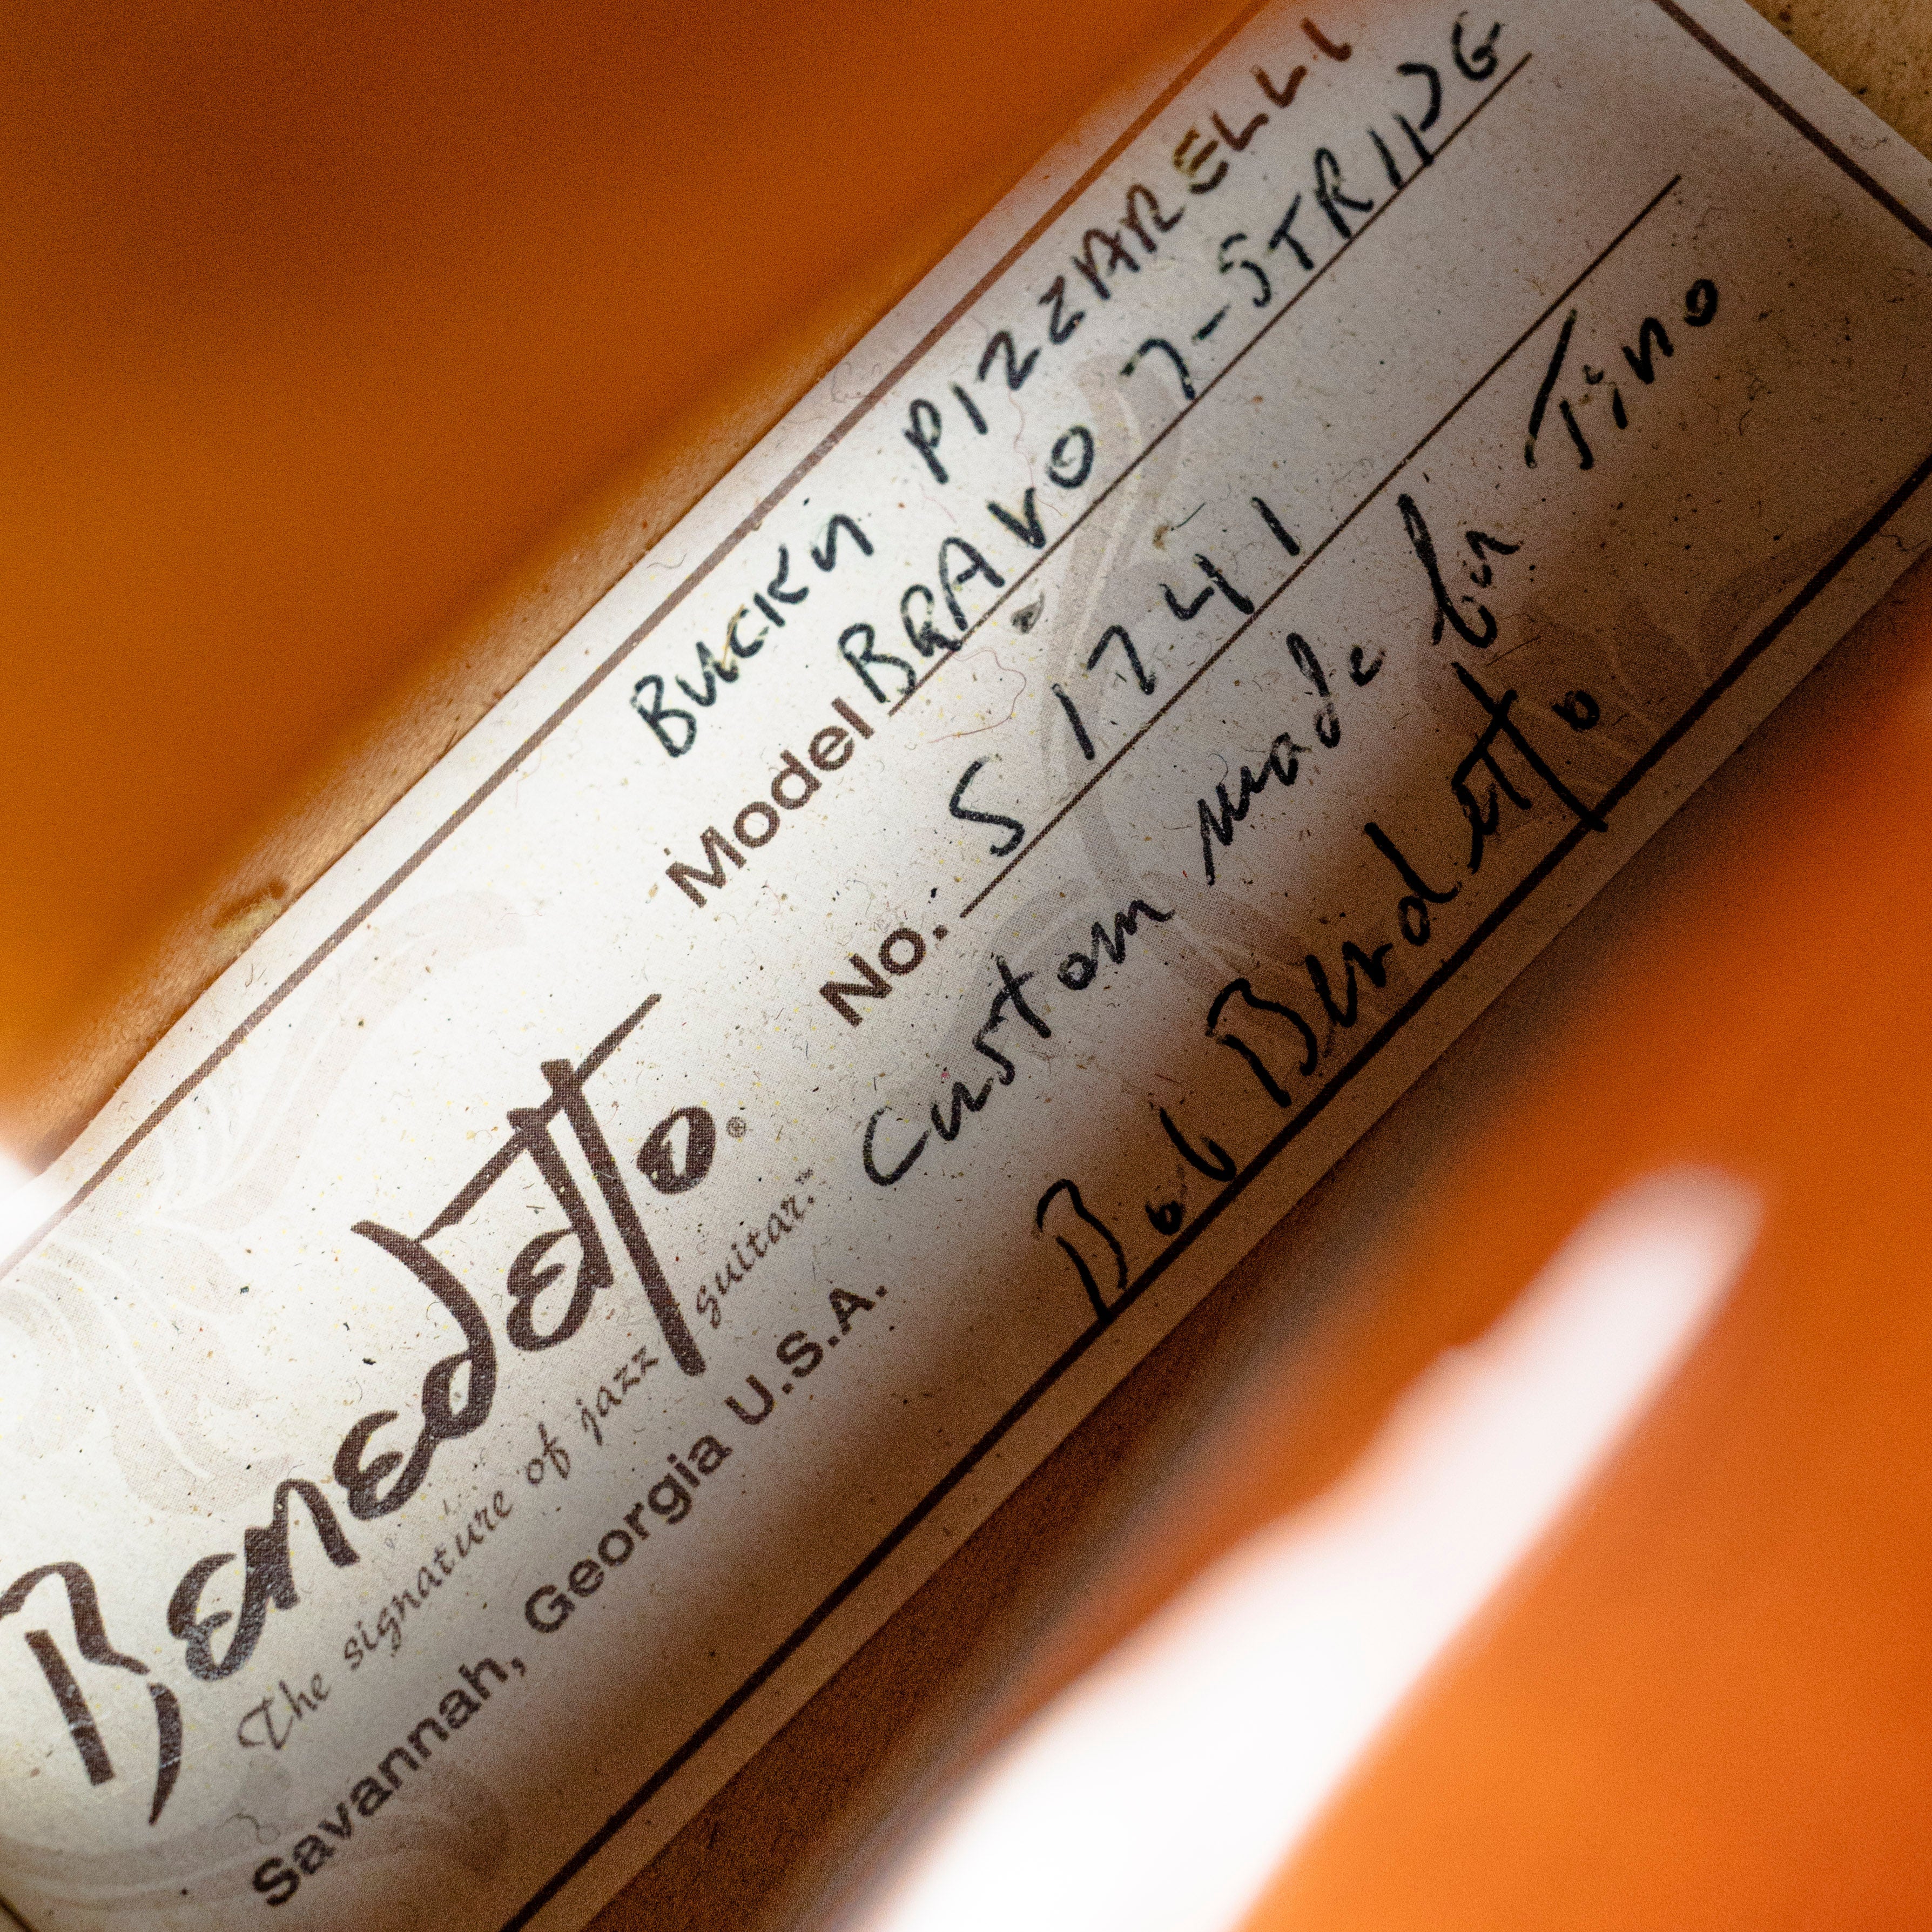 BUCKY PIZZARELLI
Model BRAVO 7-STRING
No. S1741
Benedetto®
The signature of jazz guitar.™
Savannah, Georgia U.S.A.
Custom made for Tino
Bob Benedetto